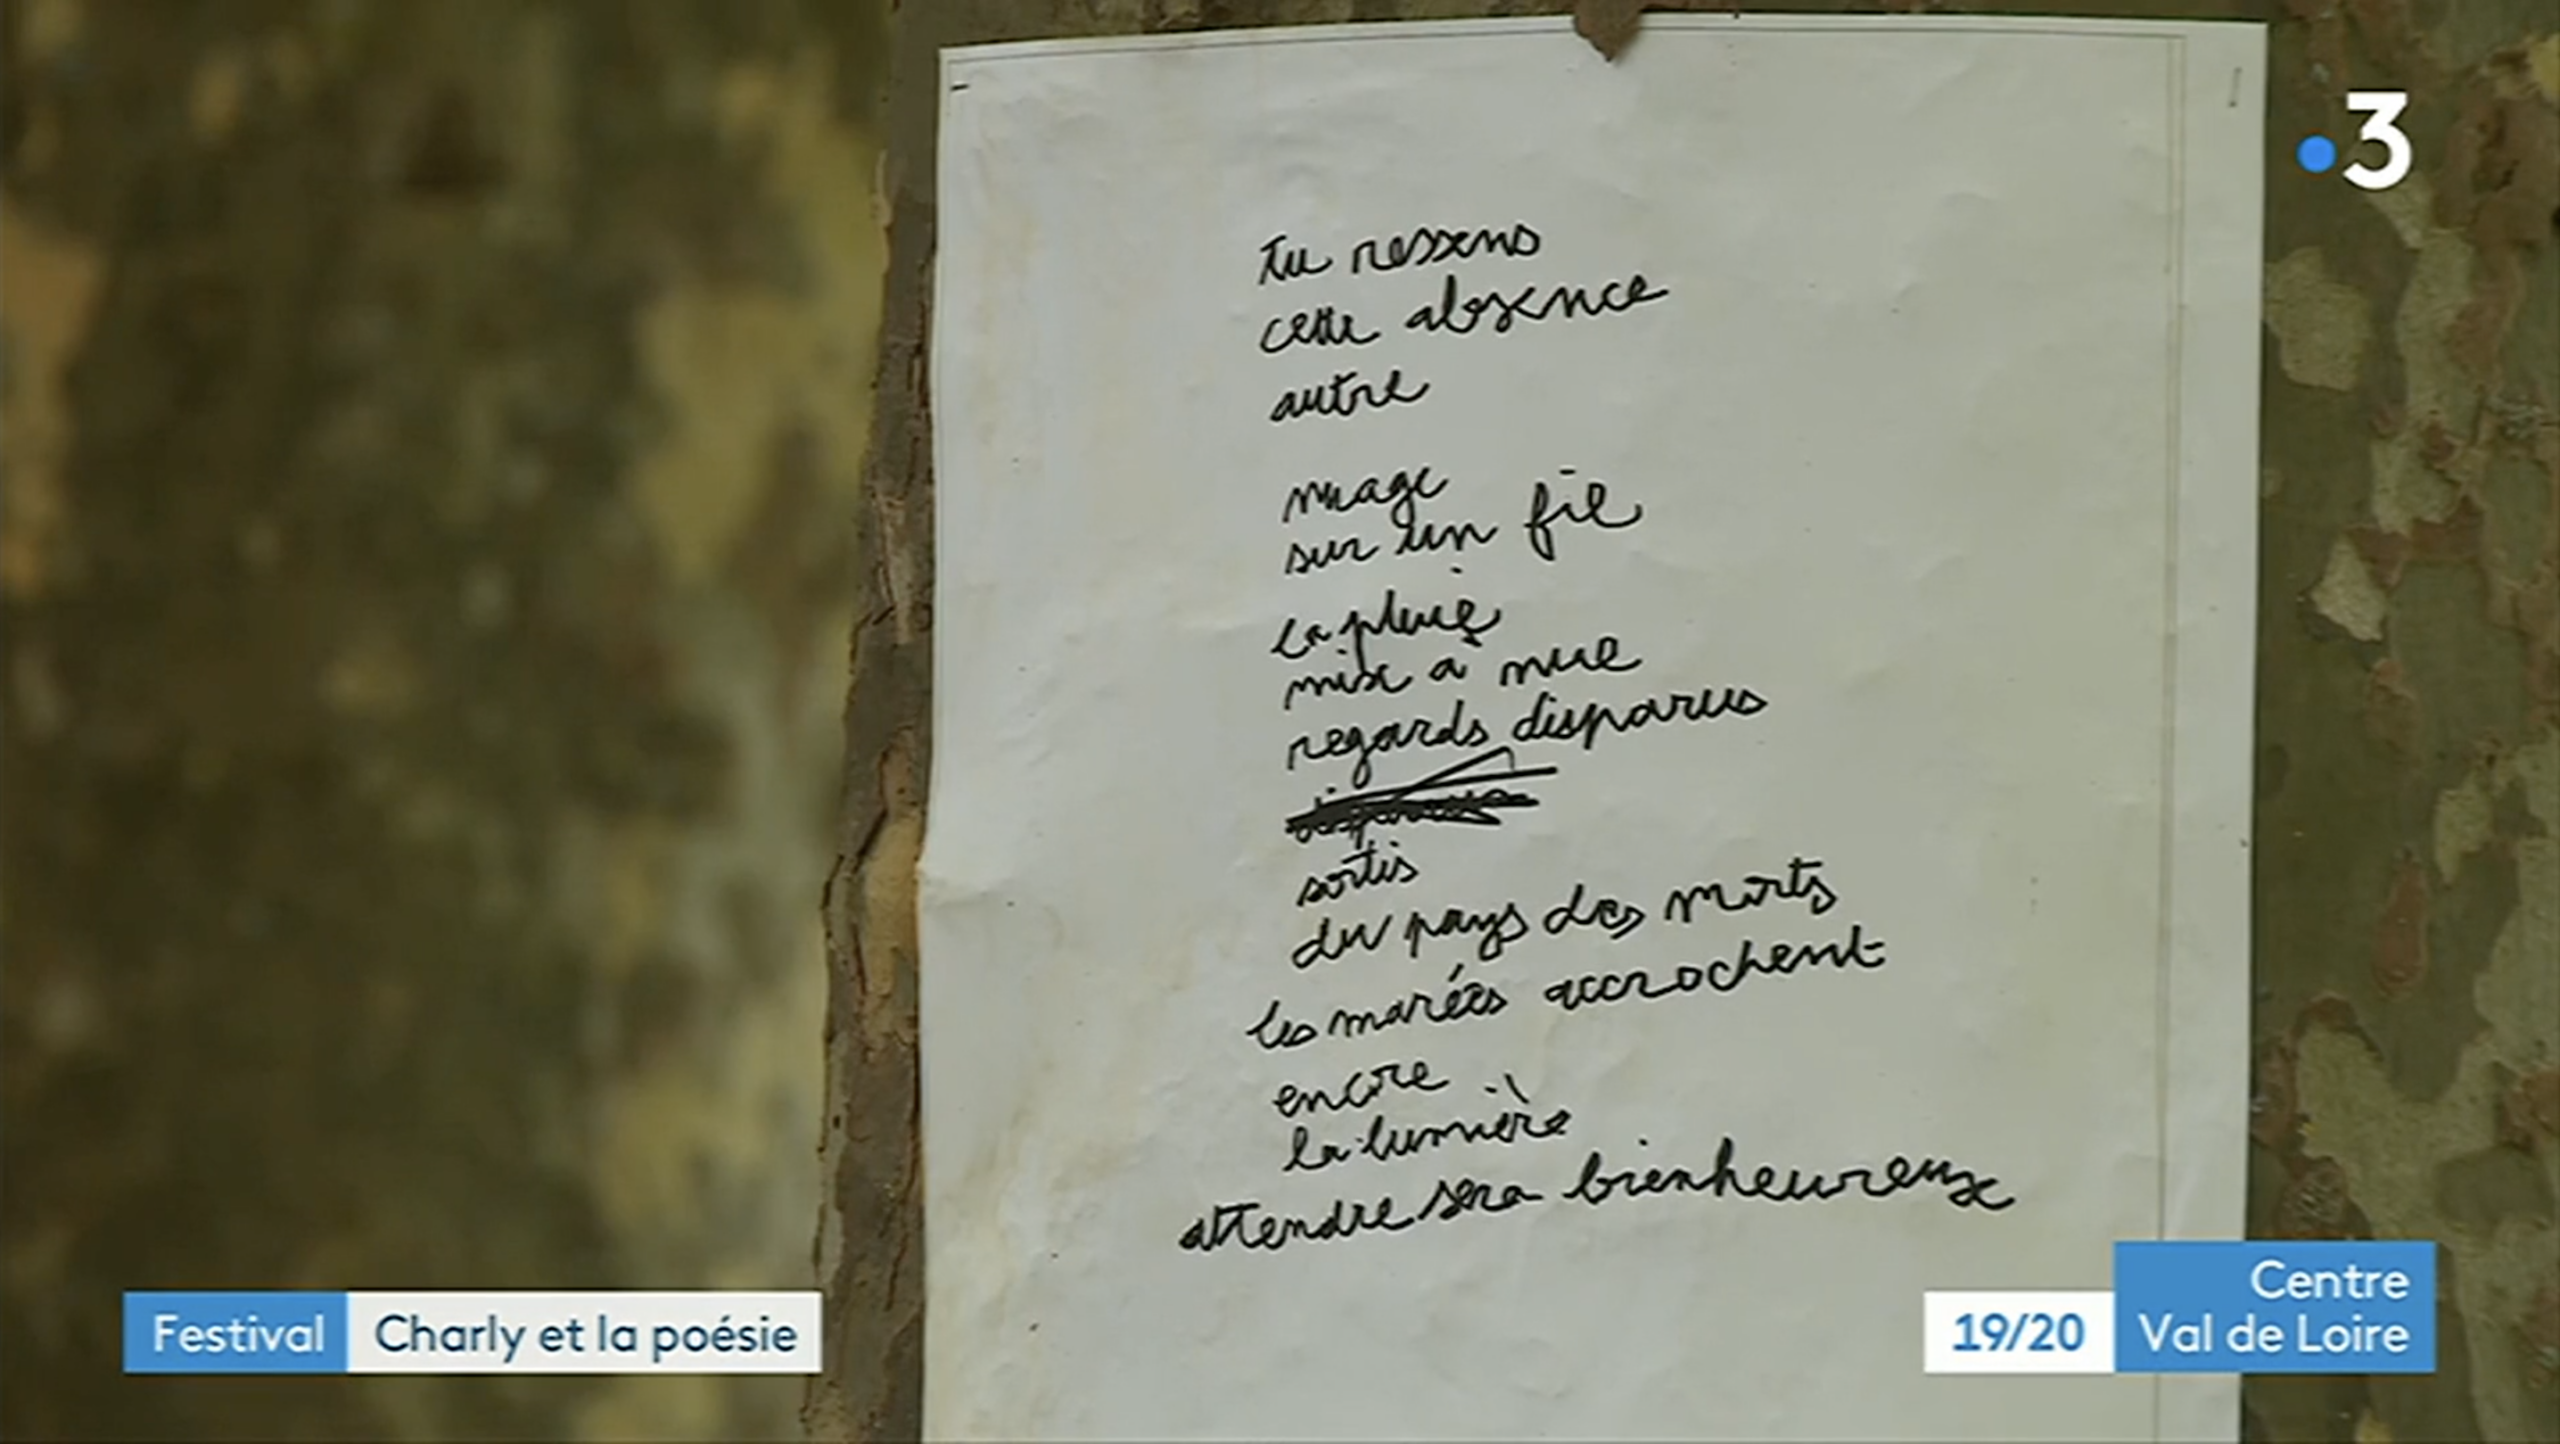 3
tu ressens
cette absence
autre
nuage
sur un fil
la pluie
mise à nue
regards disparus
sortis
du pays des morts
les marées accrochent
encore
la lumière
attendre sera bienheureux
Festival Charly et la poésie
19/20 Centre
Val de Loire